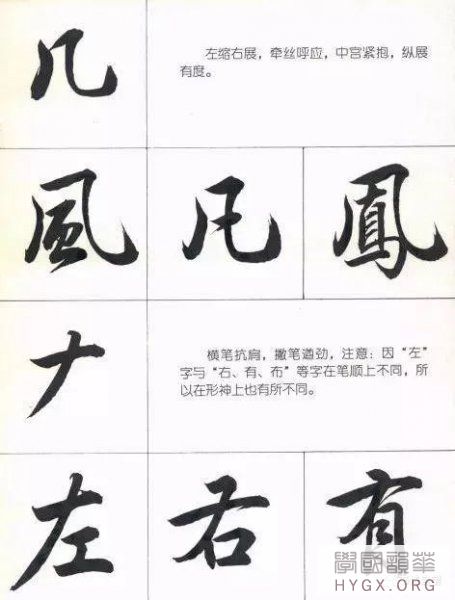 几
左缩右展，牵丝呼应，中宫紧抱，纵展
有度。
風 凡 鳳
𠂇
横笔抗肩，撇笔遒劲，注意：因“左”
字与“右、有、布”等字在笔顺上不同，所
以在形神上也有所不同。
左 右 有
學國韻華
HYGX.ORG